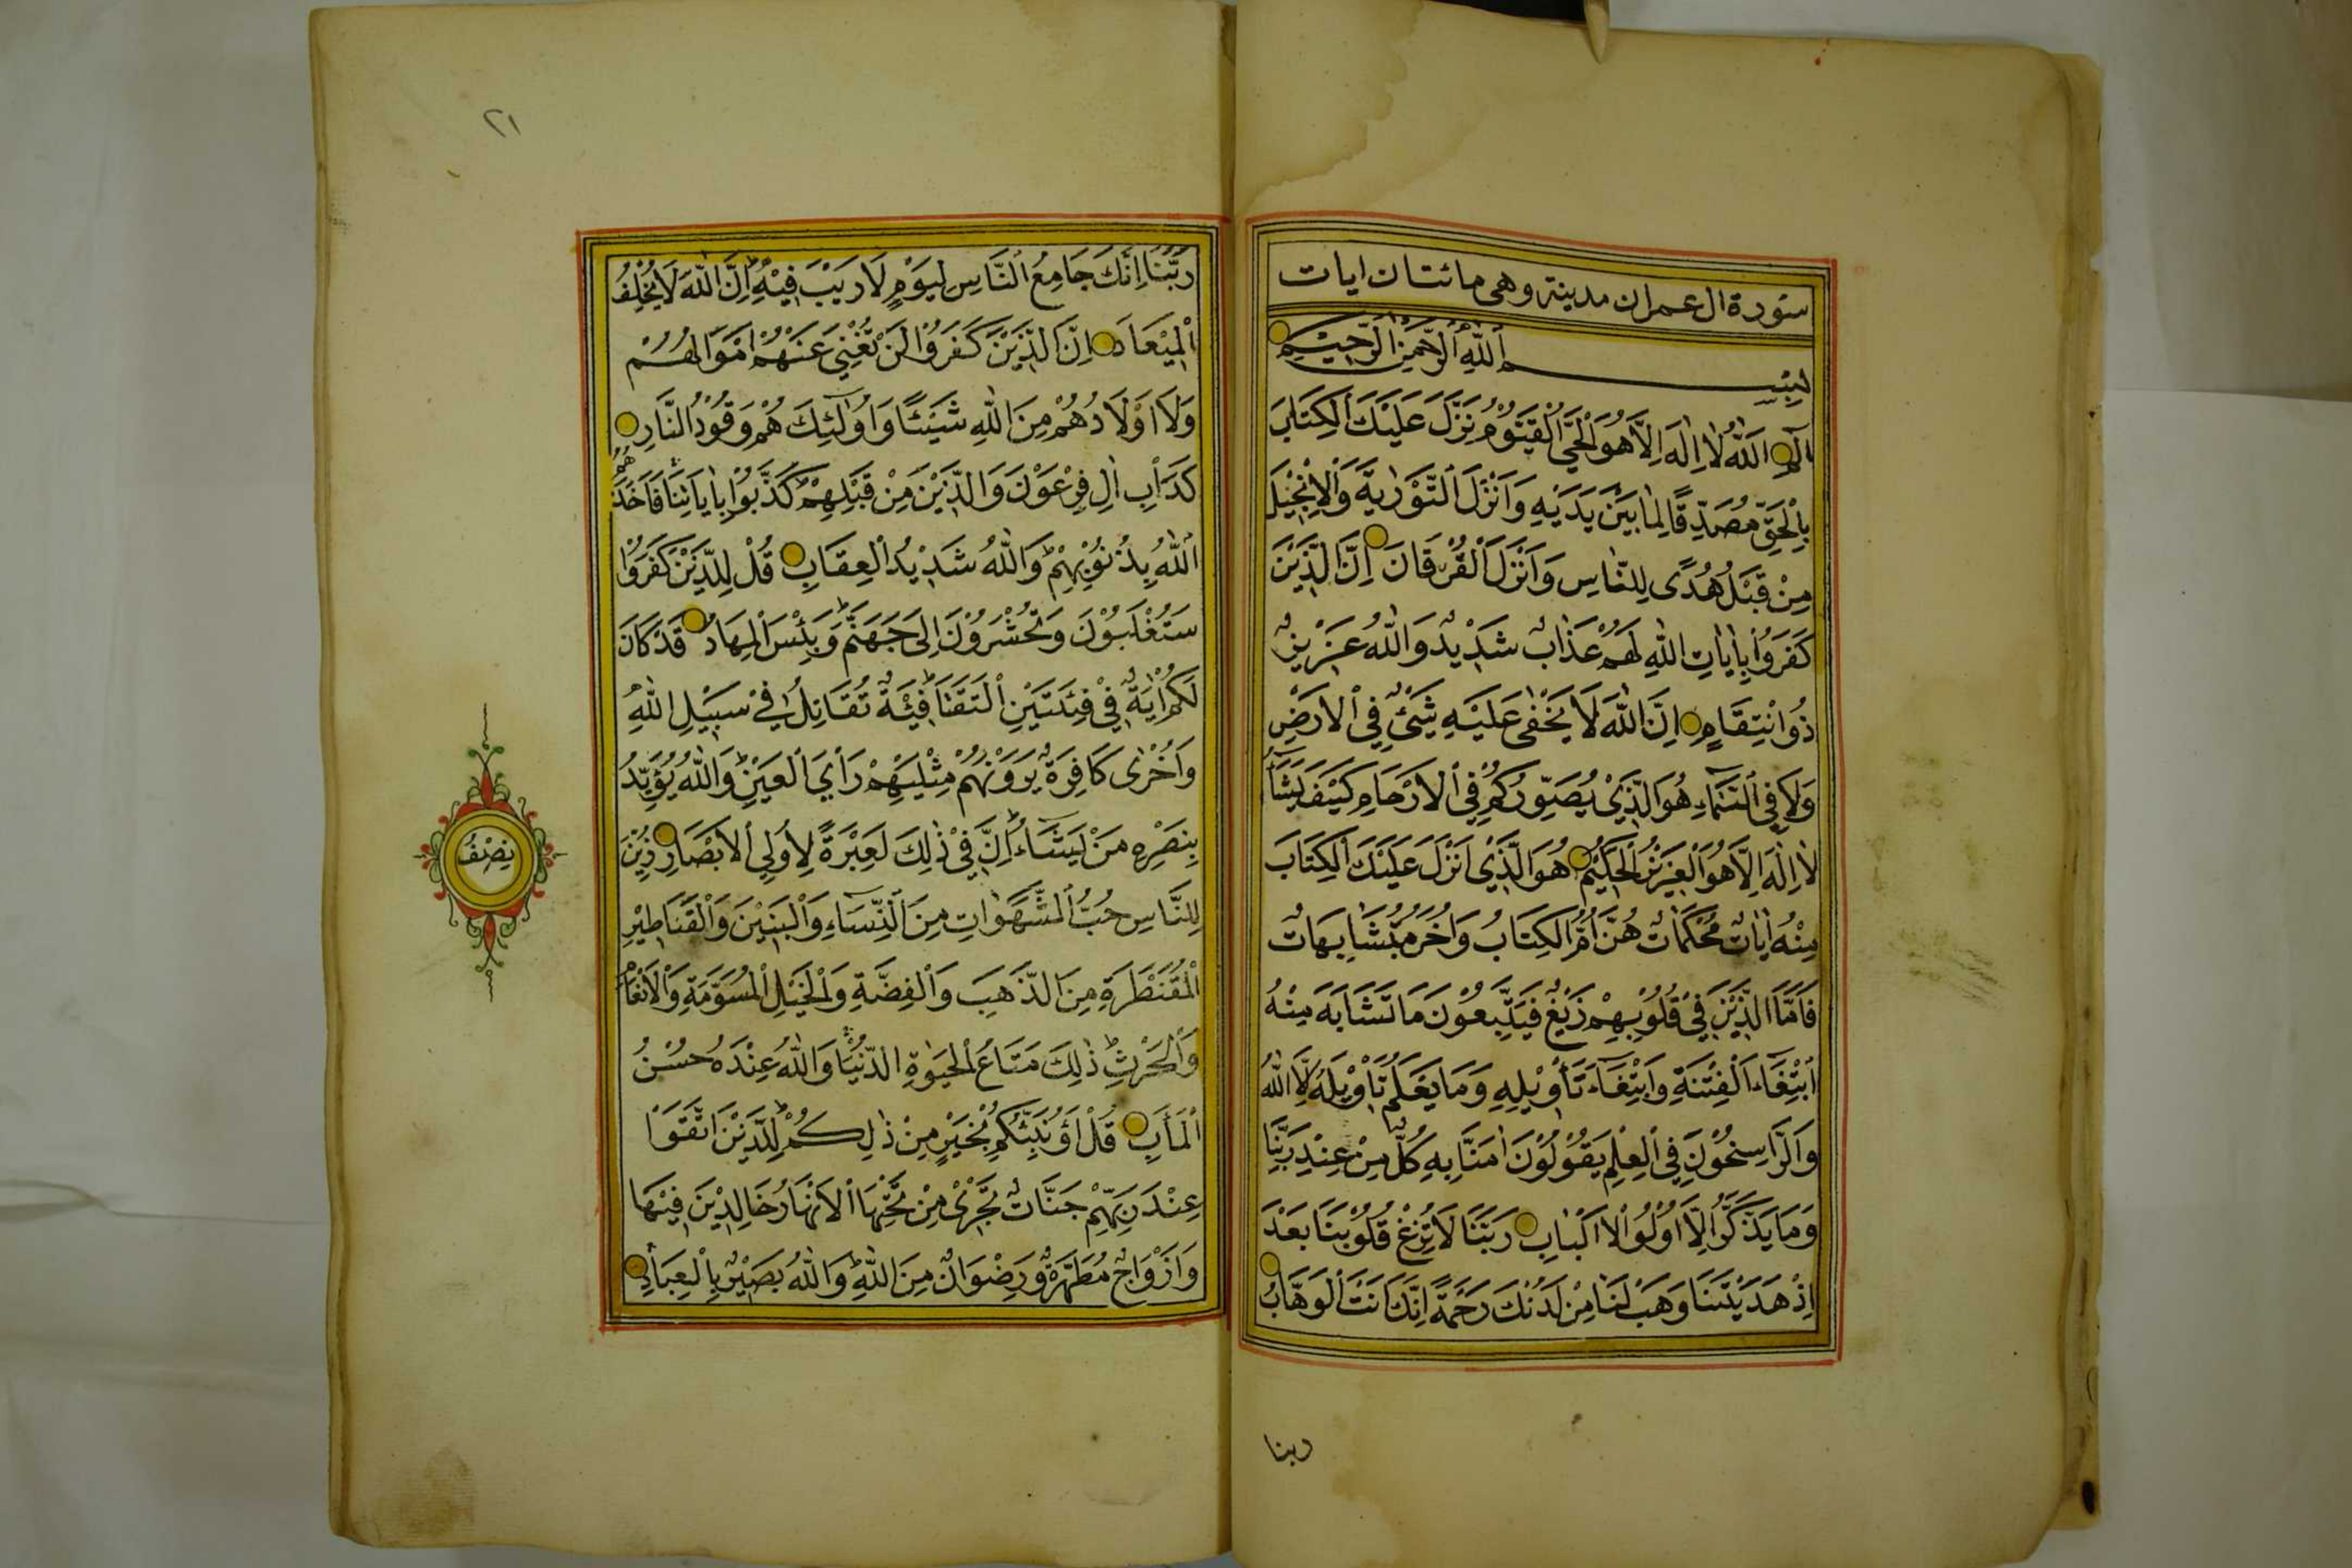 سورة ال عمران مدينة وهى مائتان ايات
بِسْمِ اللّٰهِ الرَّحْمٰنِ الرَّحِيْمِ
الٓمٓ اَللّٰهُ لَا اِلٰهَ اِلَّا هُوَ الْحَيُّ الْقَيُّوْمُ نَزَّلَ عَلَيْكَ الْكِتَابَ
بِالْحَقِّ مُصَدِّقًا لِمَا بَيْنَ يَدَيْهِ وَاَنْزَلَ التَّوْرٰيةَ وَالْاِنْجِيْلَ
مِنْ قَبْلُ هُدًى لِلنَّاسِ وَاَنْزَلَ الْفُرْقَانَ اِنَّ الَّذِيْنَ
كَفَرُوْا بِاٰيَاتِ اللّٰهِ لَهُمْ عَذَابٌ شَدِيْدٌ وَاللّٰهُ عَزِيْزٌ
ذُو انْتِقَامٍ اِنَّ اللّٰهَ لَا يَخْفٰى عَلَيْهِ شَيْئٌ فِي الْاَرْضِ
وَلَا فِي السَّمَاءِ هُوَ الَّذِيْ يُصَوِّرُكُمْ فِي الْاَرْحَامِ كَيْفَ يَشَاءُ
لَا اِلٰهَ اِلَّا هُوَ الْعَزِيْزُ الْحَكِيْمُ هُوَ الَّذِيْ اَنْزَلَ عَلَيْكَ الْكِتَابَ
مِنْهُ اٰيَاتٌ مُحْكَمَاتٌ هُنَّ اُمُّ الْكِتَابِ وَاُخَرُ مُتَشَابِهَاتٌ
فَاَمَّا الَّذِيْنَ فِيْ قُلُوْبِهِمْ زَيْغٌ فَيَتَّبِعُوْنَ مَا تَشَابَهَ مِنْهُ
ابْتِغَاءَ الْفِتْنَةِ وَابْتِغَاءَ تَأْوِيْلِهِ وَمَا يَعْلَمُ تَأْوِيْلَهُ اِلَّا اللّٰهُ
وَالرَّاسِخُوْنَ فِي الْعِلْمِ يَقُوْلُوْنَ اٰمَنَّا بِهِ كُلٌّ مِنْ عِنْدِ رَبِّنَا
وَمَا يَذَّكَّرُ اِلَّا اُوْلُوا الْاَلْبَابِ رَبَّنَا لَا تُزِغْ قُلُوْبَنَا بَعْدَ
اِذْ هَدَيْتَنَا وَهَبْ لَنَا مِنْ لَدُنْكَ رَحْمَةً اِنَّكَ اَنْتَ الْوَهَّابُ
ربنا
٢١
رَبَّنَا اِنَّكَ جَامِعُ النَّاسِ لِيَوْمٍ لَا رَيْبَ فِيْهِ اِنَّ اللّٰهَ لَا يُخْلِفُ
الْمِيْعَادَ اِنَّ الَّذِيْنَ كَفَرُوْا لَنْ تُغْنِيَ عَنْهُمْ اَمْوَالُهُمْ
وَلَا اَوْلَادُهُمْ مِنَ اللّٰهِ شَيْئًا وَاُولٰئِكَ هُمْ وَقُوْدُ النَّارِ
كَدَأْبِ اٰلِ فِرْعَوْنَ وَالَّذِيْنَ مِنْ قَبْلِهِمْ كَذَّبُوْا بِاٰيَاتِنَا فَاَخَذَهُمُ
اللّٰهُ بِذُنُوْبِهِمْ وَاللّٰهُ شَدِيْدُ الْعِقَابِ قُلْ لِلَّذِيْنَ كَفَرُوْا
سَتُغْلَبُوْنَ وَتُحْشَرُوْنَ اِلٰى جَهَنَّمَ وَبِئْسَ الْمِهَادُ قَدْ كَانَ
لَكُمْ اٰيَةٌ فِيْ فِئَتَيْنِ الْتَقَتَا فِئَةٌ تُقَاتِلُ فِيْ سَبِيْلِ اللّٰهِ
وَاُخْرٰى كَافِرَةٌ يَرَوْنَهُمْ مِثْلَيْهِمْ رَأْيَ الْعَيْنِ وَاللّٰهُ يُؤَيِّدُ
بِنَصْرِهِ مَنْ يَشَاءُ اِنَّ فِيْ ذٰلِكَ لَعِبْرَةً لِاُولِي الْاَبْصَارِ زُيِّنَ
لِلنَّاسِ حُبُّ الشَّهَوَاتِ مِنَ النِّسَاءِ وَالْبَنِيْنَ وَالْقَنَاطِيْرِ
الْمُقَنْطَرَةِ مِنَ الذَّهَبِ وَالْفِضَّةِ وَالْخَيْلِ الْمُسَوَّمَةِ وَالْاَنْعَامِ
وَالْحَرْثِ ذٰلِكَ مَتَاعُ الْحَيٰوةِ الدُّنْيَا وَاللّٰهُ عِنْدَهُ حُسْنُ
الْمَاٰبِ قُلْ اَؤُنَبِّئُكُمْ بِخَيْرٍ مِنْ ذٰلِكُمْ لِلَّذِيْنَ اتَّقَوْا
عِنْدَ رَبِّهِمْ جَنَّاتٌ تَجْرِيْ مِنْ تَحْتِهَا الْاَنْهَارُ خَالِدِيْنَ فِيْهَا
وَاَزْوَاجٌ مُطَهَّرَةٌ وَرِضْوَانٌ مِنَ اللّٰهِ وَاللّٰهُ بَصِيْرٌ بِالْعِبَادِ
نِصْفُ